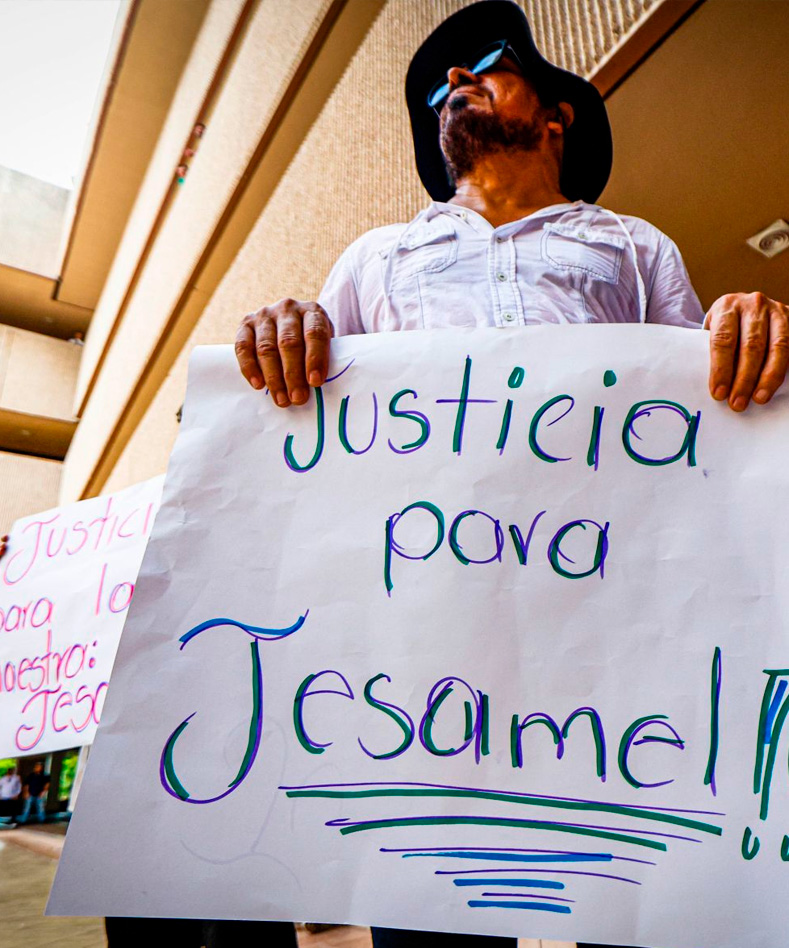 Justicia
para
Jesamel!!
Justici
para la
maestra:
Jesa